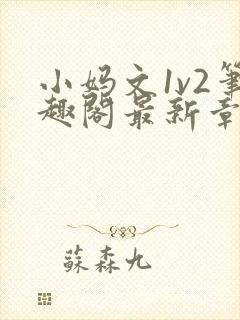 小妈文1v2笔
趣阁最新章
蘇森九